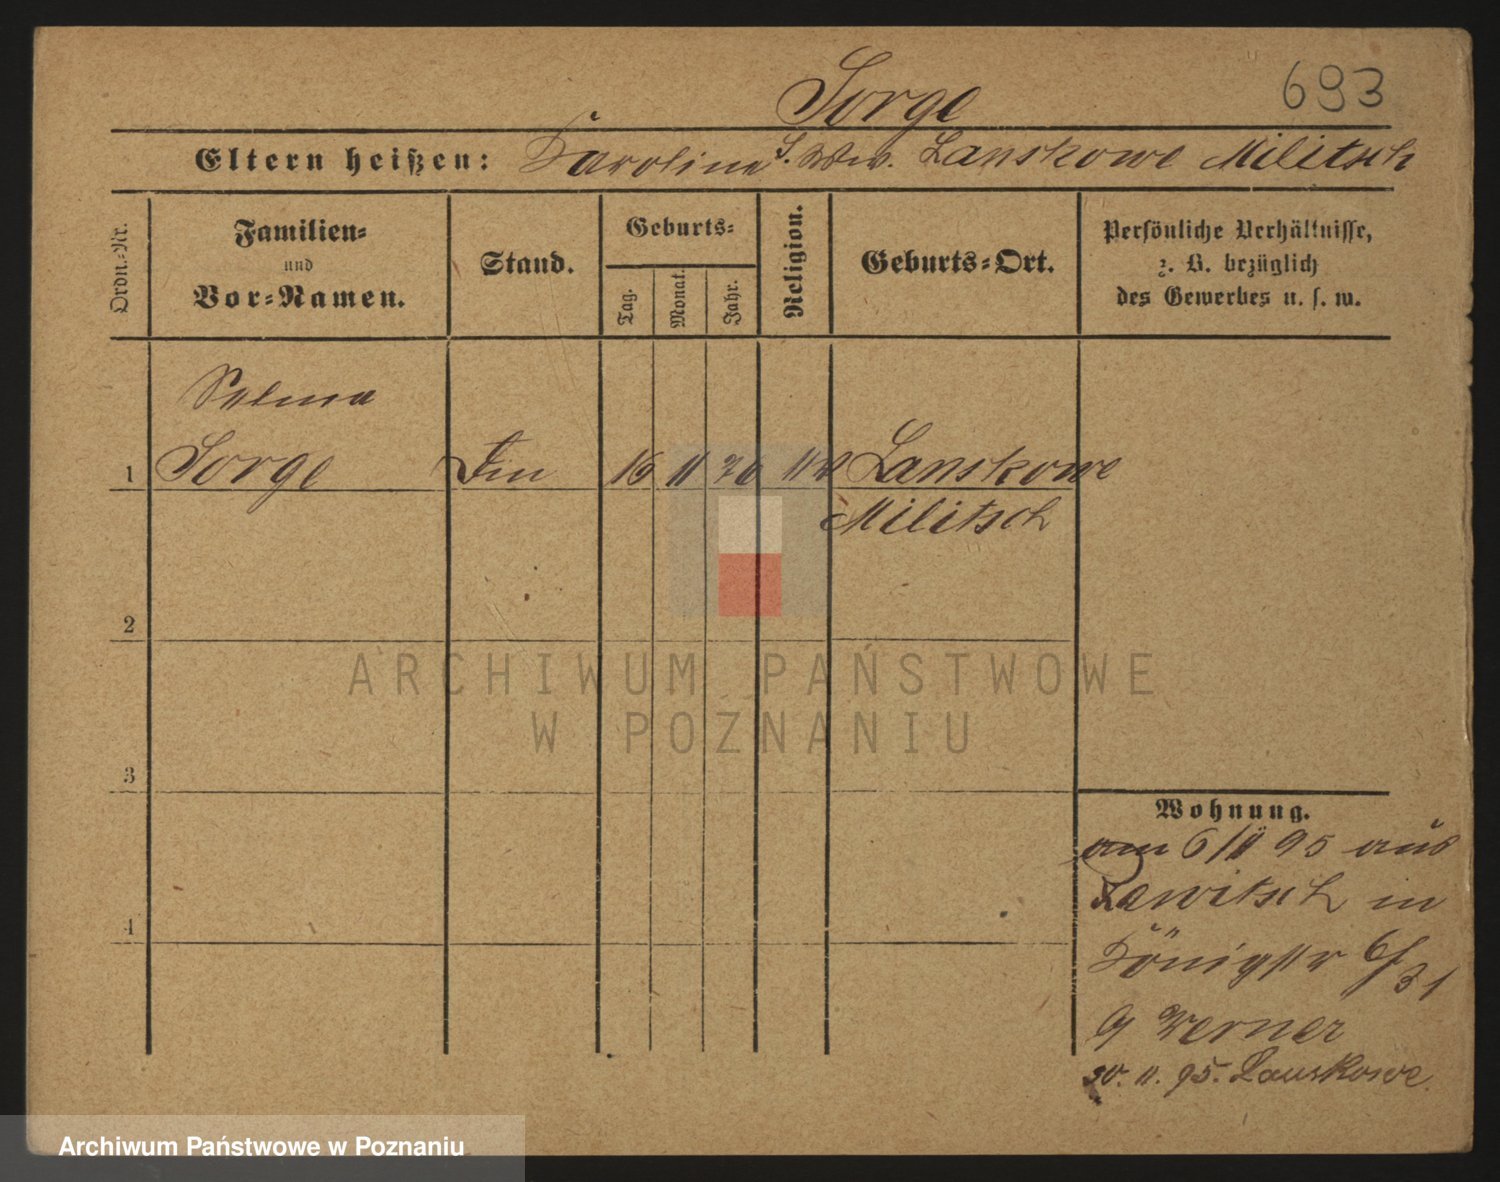 693
Sorge
Eltern heißen: Karoline S. Ww. Lanskowe Militsch
Ordn.-Nr.
Familien-
und
Vor-Namen.
Stand.
Geburts-
Tag.
Monat.
Jahr.
Religion.
Geburts-Ort.
Persönliche Verhältnisse,
z. B. bezüglich
des Gewerbes u. s. w.
Selma
1 Sorge 16 11 76 Lanskowe
Militsch
2
3
4
Wohnung.
am 6/11 95 aus
Rawitsch in
Königstr 6/
31
Werner
30. 11. 95. Lanskowe.
ARCHIWUM PAŃSTWOWE
W POZNANIU
Archiwum Państwowe w Poznaniu